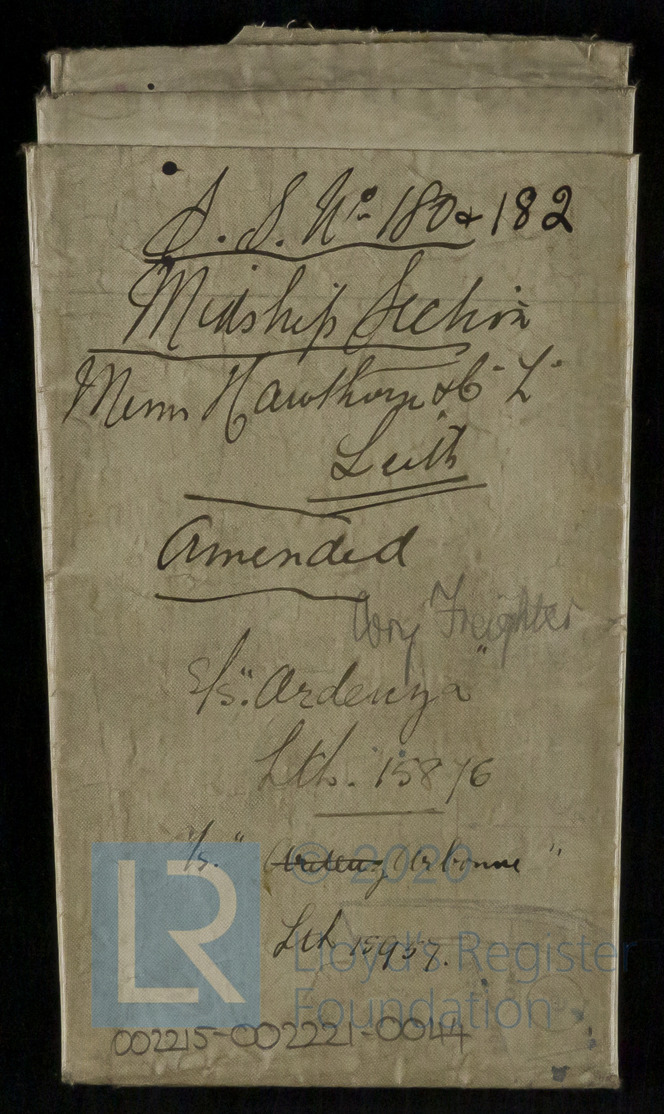 S. S. No. 180 & 182
Midship Section
Messrs Hawthorn & Co Ld
Leith
Amended
Freighter
S/s. "Ardenza"
Lth. 15876
S/s. " Ardenz Arbonne "
Lth 15957.
LR © 2020
Lloyd's Register
Foundation
002215-002221-0044